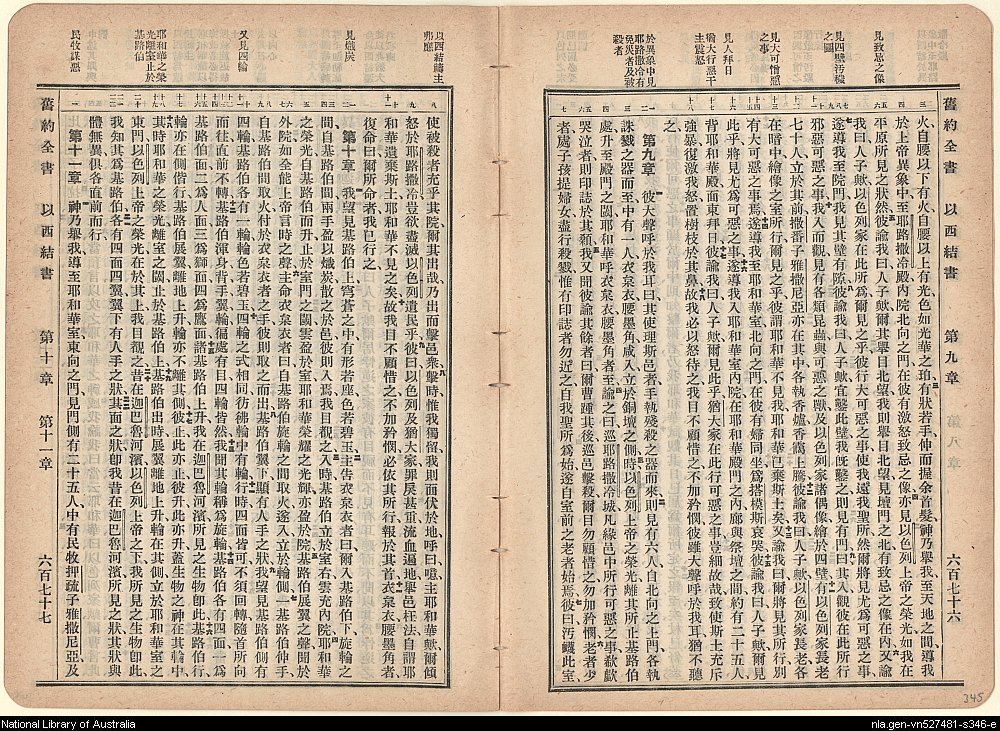 舊約全書 以西結書 第九章 六百七十六
見致忌之像
見四壁汚穢之圖
見大可憎惡之事
見人拜日
猶大行惡干主震怒
於異象中見耶路撒冷有免災者及被殺者
火自腰以下有火自腰以上有光色如光華之珀有狀若手伸而握余首髮神乃舉我至天地之間導我
於上帝異象中至耶路撒冷殿內院北向之門在彼有激怒致忌之像亦見以色列上帝之榮光如我在
平原所見之狀然彼諭我曰人子歟爾其舉目北望我則舉目北望見壇門之北有致忌之像在內又諭
我曰人子歟以色列家在此所爲爾見之乎彼行大可惡之事使我遠我聖所然爾將見尤爲可惡之事
遂導我至院門我見其壁有隙彼諭我曰人子歟宜鑿此壁我旣鑿之則見有門曰其入觀彼在此所行
邪惡可惡之事我入而觀見有各類昆蟲與可惡之獸及以色列家諸偶像繪於四壁有以色列家長老
七十人立於其前撒番子雅撒尼亞亦在其中各執香爐香靄上騰彼諭我曰人子歟以色列家長老各
在暗中繪像之室所行爾見之乎彼謂耶和華不見我耶和華遺棄斯土矣又諭我曰爾將見其所行別
有大可惡之事焉遂導我至耶和華室北向之門在彼有婦同坐爲搭模斯哀哭彼諭我曰人子歟爾見
此乎將見尤爲可惡之事遂導我入耶和華室內院在耶和華殿門之內廊與祭壇之間約有二十五人
背耶和華殿面東拜日彼諭我曰人子歟爾見此乎猶大家在此行可惡之事豈細故哉致使斯土充斥
強暴復激我怒置樹枝於其鼻故我必以怒待之我目不顧惜之不加矜憫彼雖大聲呼於我耳猶不聽
第九章 彼大聲呼於我耳曰其使理斯邑者手執殘殺之器而來則見有六人自北向之上門各執
誅戮之器而至中有一人衣枲衣腰墨角咸入立於銅壇之側時以色列上帝之榮光離其所止基路伯
處升至殿門之閾耶和華呼衣枲衣腰墨角者至諭之曰巡耶路撒冷城凡緣邑中所行可惡之事欷歔
哭泣者則印誌於其顙我又聞彼諭其餘者曰爾曹踵其後巡邑擊殺爾目勿顧惜之勿加矜憫老者少
者處子孩提婦女盡行殺戮惟有印誌者勿近之自我聖所爲始遂自室前之老者始焉彼曰汚衊此室
345
舊約全書 以西結書 第十章 第十一章 六百七十七
以西結籲主弗應
見熾炭
又見四輪
耶和華之榮光離室止於基路伯
民牧謀惡
使被殺者充乎其院爾其出哉乃出而擊邑衆擊時惟我獨留我則面伏於地呼曰噫主耶和華歟爾傾
怒於耶路撒冷豈欲盡滅以色列遺民乎彼曰以色列及猶大家罪戾甚重流血遍地舉邑枉法自謂耶
和華遺棄斯土耶和華不見之矣故我目不顧惜之不加矜憫必依其所行報於其首衣枲衣腰墨角者
復命曰爾所命者我已行之
第十章 我望見基路伯上穹蒼之中有形若座色若碧玉主告衣枲衣者曰爾入基路伯下旋輪之
間自基路伯間兩手盈以熾炭散之於邑彼則入焉我目覩之入時基路伯立於室右雲充內院耶和華
之榮光自基路伯而升止於室門之閾雲盈於室耶和華榮耀之光輝亦盈於院基路伯展翼之聲聞於
外院如全能上帝言時之聲主命衣枲衣者曰自基路伯旋輪之間取火遂入立於輪側一基路伯伸手
自基路伯間取火付於衣枲衣者之手彼則取之而出基路伯翼下顯有人手之狀我望見基路伯側有
四輪基路伯各有一輪輪色若碧玉四輪之式相同彷彿輪中有輪行時四面皆可不須回轉隨首所向
而往直前不轉基路伯渾身背手翼輪徧處有目四輪皆然我聞其輪稱爲旋輪基路伯各有四面一爲
基路伯面二爲人面三爲獅面四爲鷹面諸基路伯上升我在迦巴魯河濱所見之生物卽此基路伯行
輪亦在側偕行基路伯展翼離地上升輪亦不離其側彼止此亦止彼升此亦升蓋生物之神在其輪中
其時耶和華之榮光離室之閾止於基路伯上基路伯出時展翼離地上升輪在其側立於耶和華室之
東門以色列上帝之榮光在於其上我目覩之昔在迦巴魯河濱以色列上帝之下我所見之生物卽此
我知其爲基路伯各有四面四翼翼下有人手之狀其面之狀卽我昔在迦巴魯河濱所見之狀其狀與
體無異俱各直前而行
第十一章 神乃舉我導至耶和華室東向之門見門側有二十五人中有民牧押疏子雅撒尼亞及
National Library of Australia
nla.gen-vn527481-s346-e